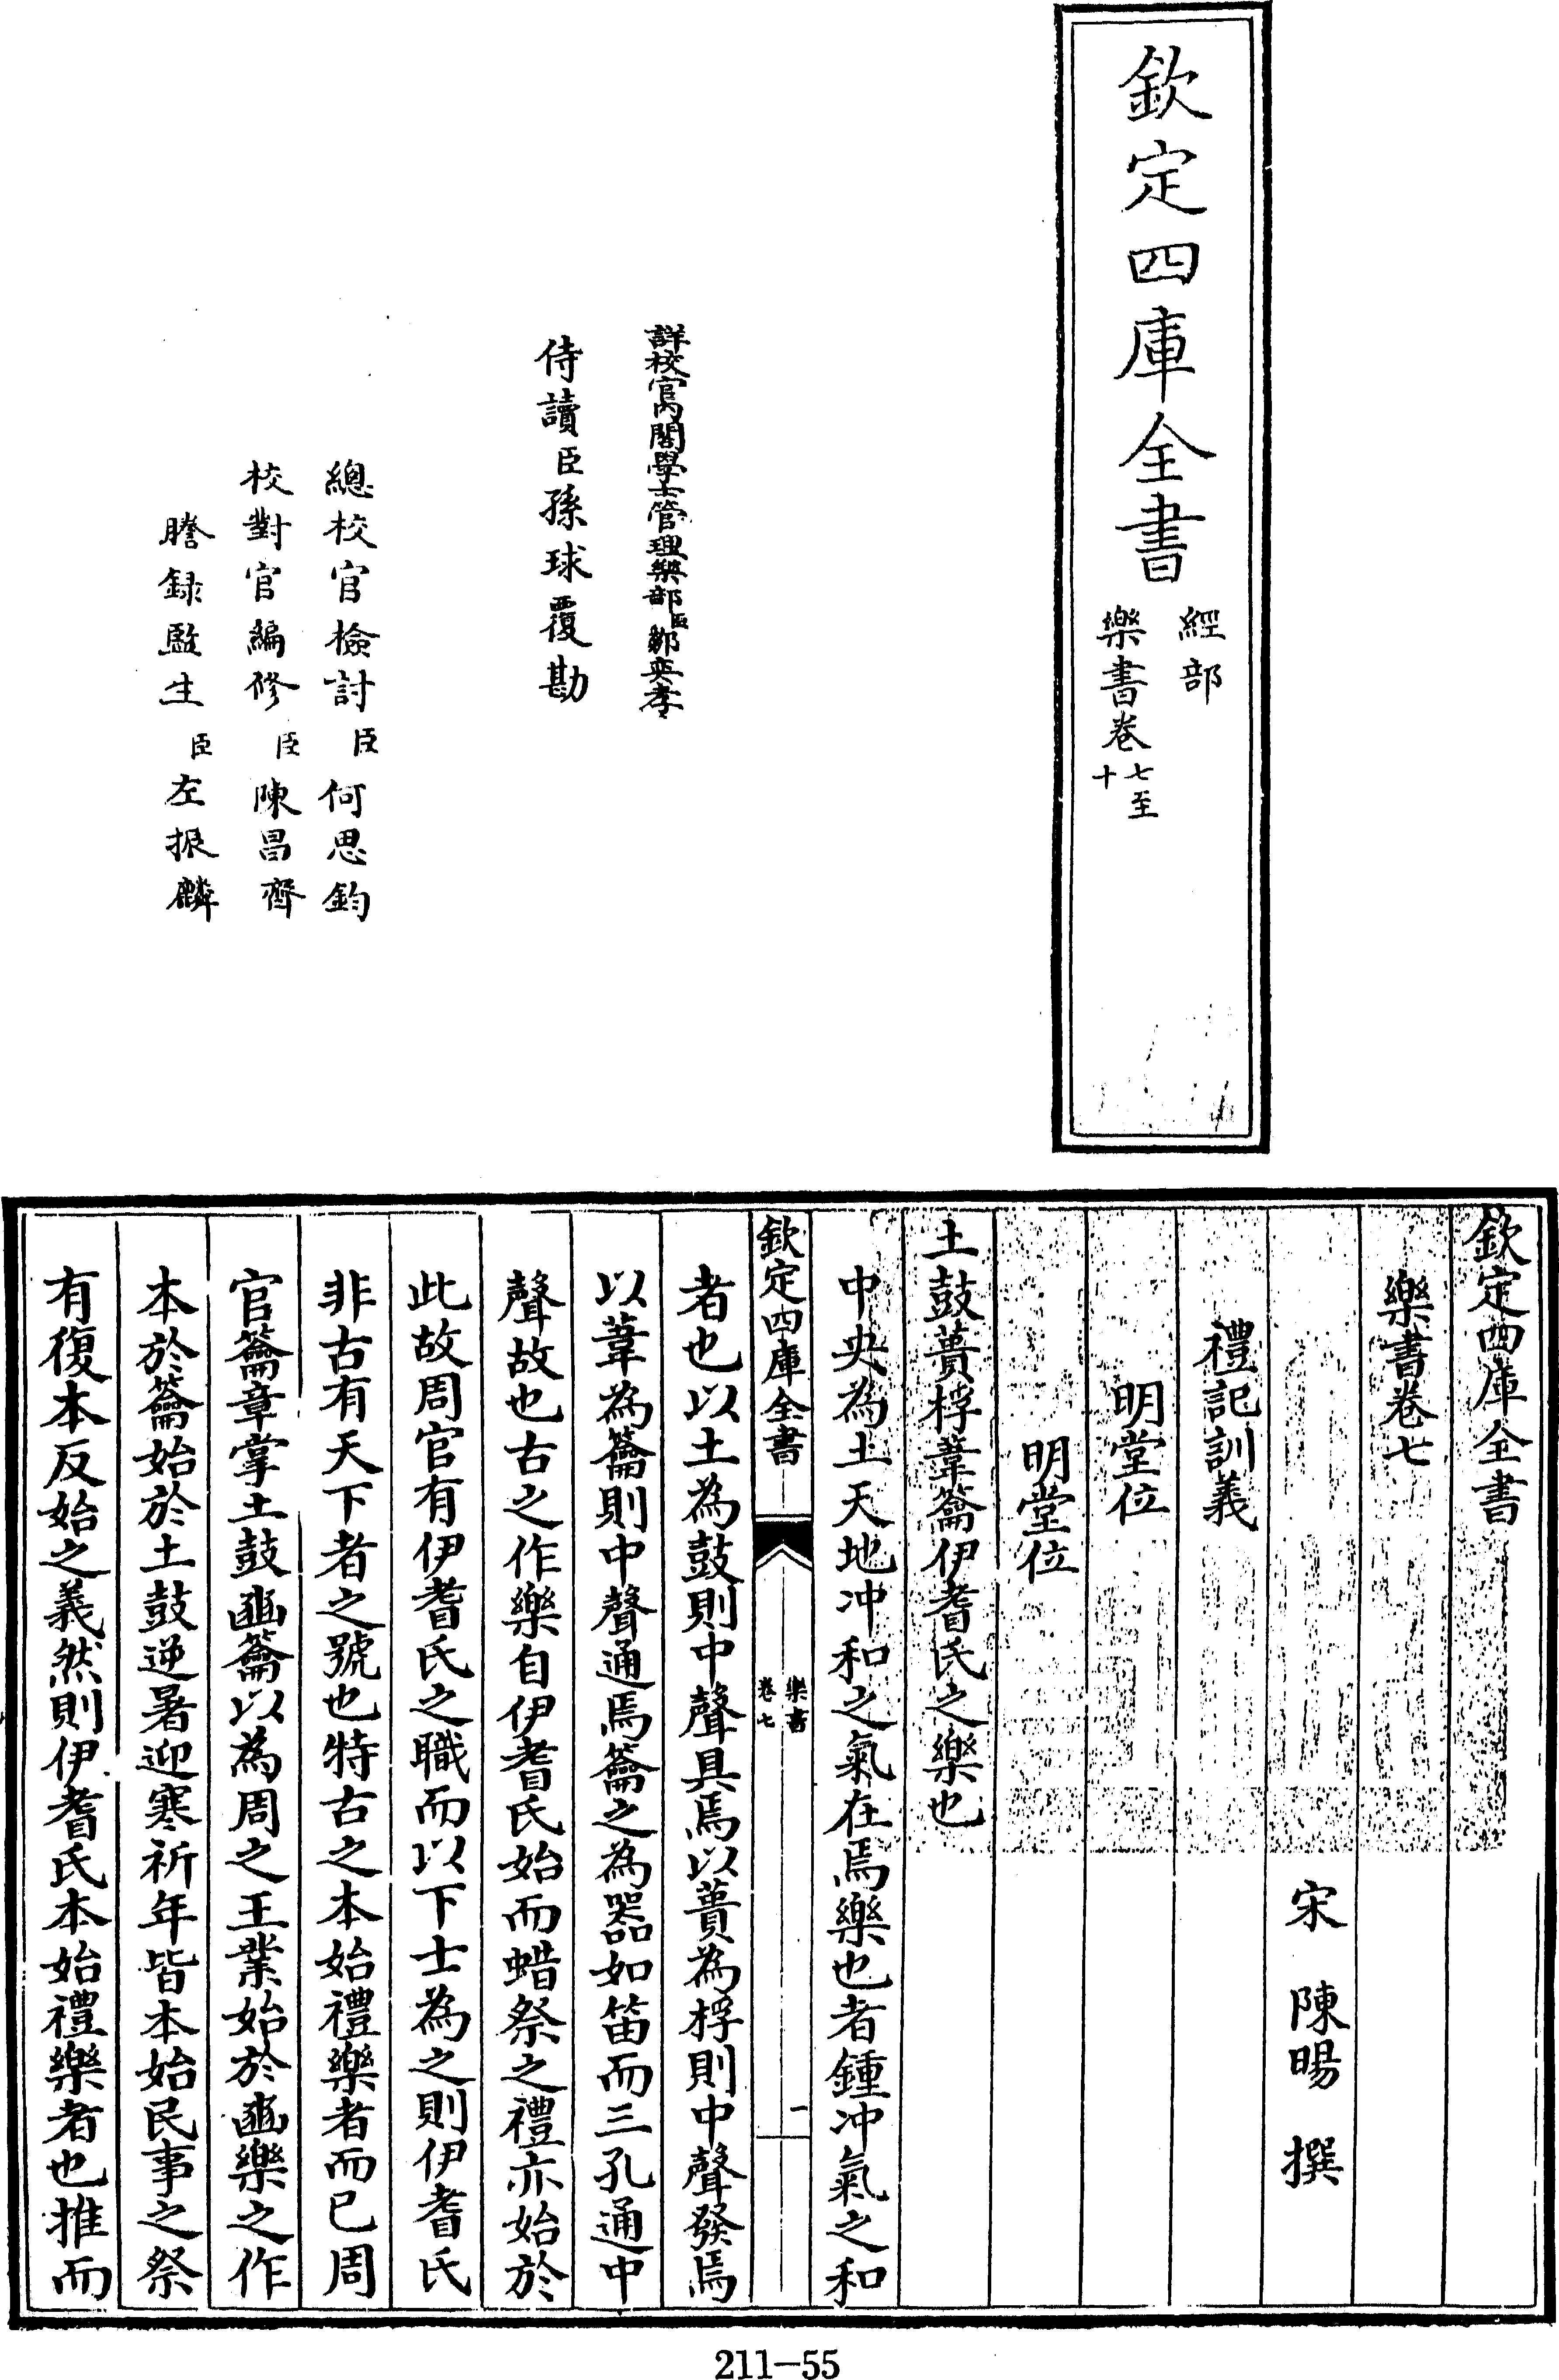 欽定四庫全書
經部
樂書卷七至十
詳校官內閣學士管理樂部臣鄒奕孝
侍讀臣孫球覆勘
總校官檢討臣何思鈞
校對官編修臣陳昌齊
謄録監生臣左振麟
欽定四庫全書
樂書卷七
宋 陳暘 撰
禮記訓義
明堂位
明堂位
土鼓蕢桴葦籥伊耆氏之樂也
中央為土天地冲和之氣在焉樂也者鍾冲氣之和
欽定四庫全書
樂書
卷七
一
者也以土為鼓則中聲具焉以蕢為桴則中聲發焉
以葦為籥則中聲通焉籥之為器如笛而三孔通中
聲故也古之作樂自伊耆氏始而蜡祭之禮亦始於
此故周官有伊耆氏之職而以下士為之則伊耆氏
非古有天下者之號也特古之本始禮樂者而已周
官籥章掌土鼓豳籥以為周之王業始於豳樂之作
本於籥始於土鼓逆暑迎寒祈年皆本始民事之祭
有復本反始之義然則伊耆氏本始禮樂者也推而
211-55